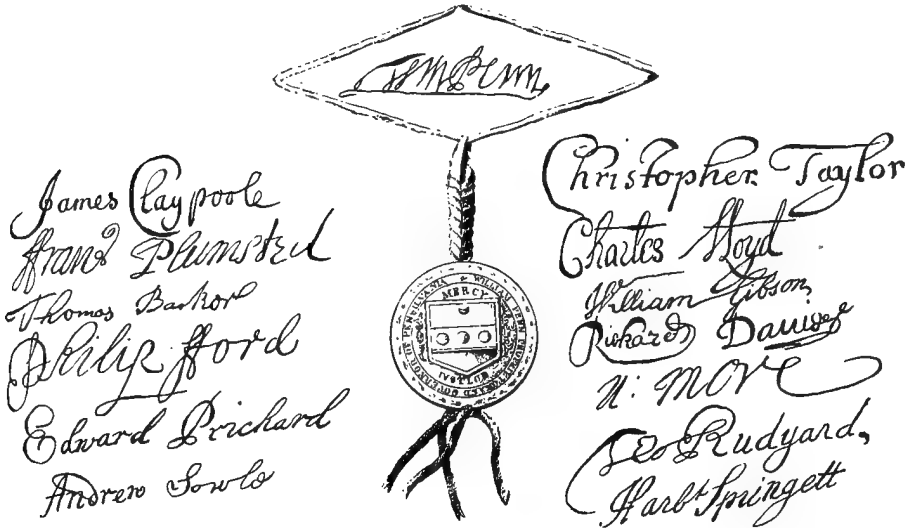 Wm Penn
James Claypoole
ffranc Plumsted
Thomas Barker
Philip fford
Edward Prichard
Andrew Sowle
WILLIAM PENN PROPRIETOR AND GOVERNOR OF PENSILVANIA
MERCY
IVSTICE
Christopher Taylor
Charles Lloyd
William Gibson
Richard Davies
N: More
Geo Rudyard,
Harbt Springett